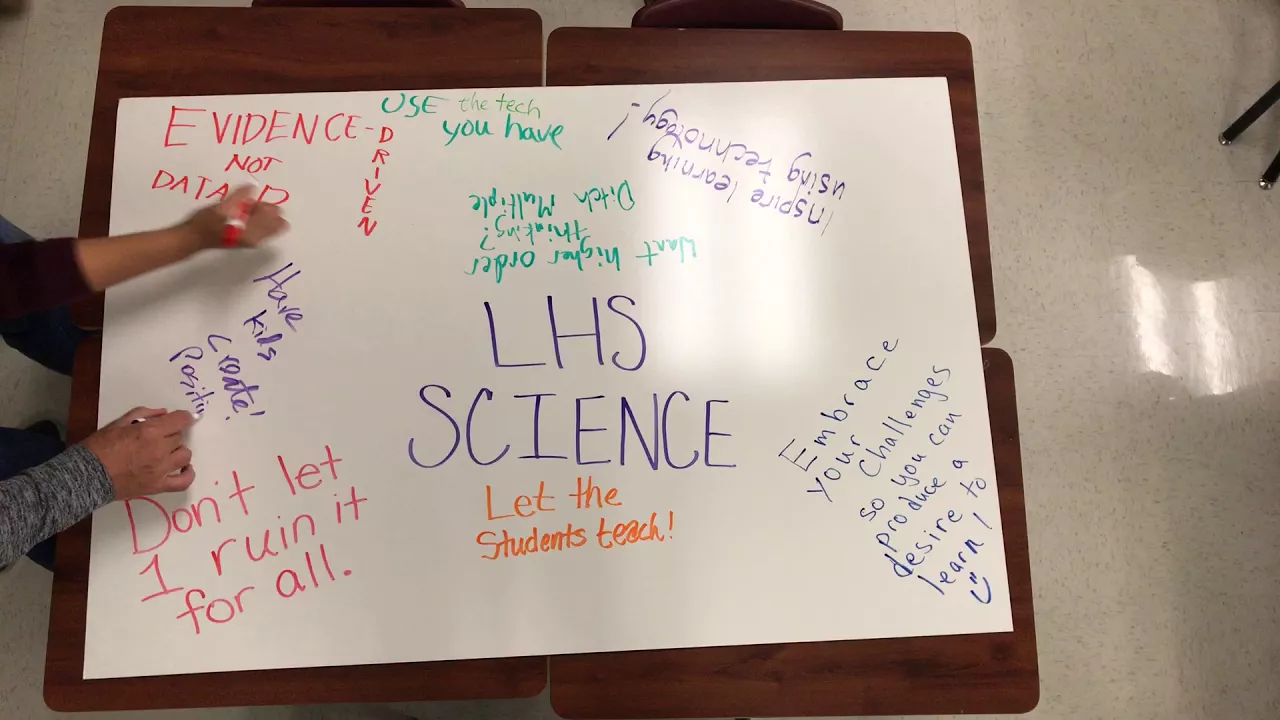 EVIDENCE-DRIVEN
NOT
USE the tech
you have
Inspire learning
using technology!
Want higher order
thinking?
Ditch Multiple
Have
kids
create!
LHS
SCIENCE
Let the
Students teach!
Don't let
1 ruin it
for all.
Embrace
your
Challenges
so you can
produce a
desire to
learn!